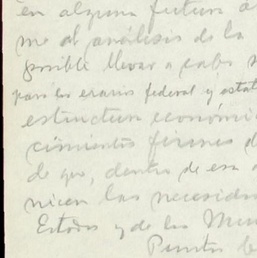 en alguna futura
me al análisis de la
posible llevar a cabo
para los erarios federal y estat
estructura económic
cimientos firmes d
de que, dentro de esa
nicen las necesida
Estados y de los Mun
Punto